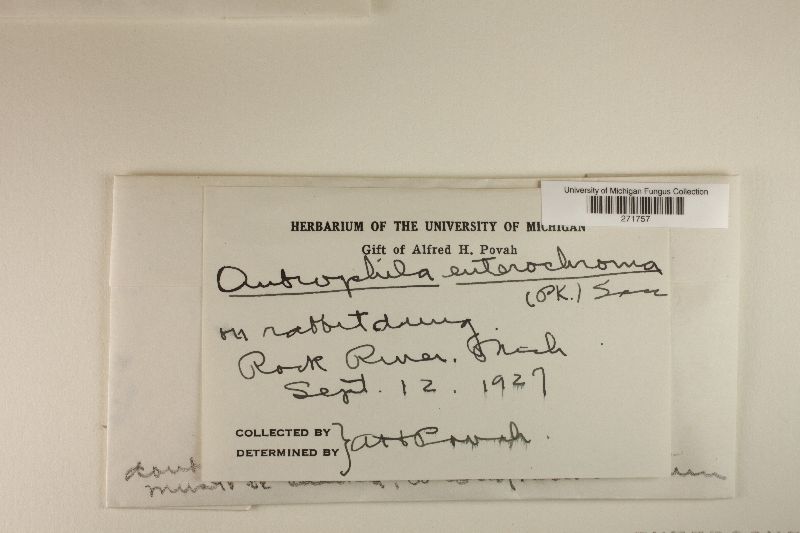 University of Michigan Fungus Collection
271757
HERBARIUM OF THE UNIVERSITY OF MICHIGAN
Gift of Alfred H. Povah
enterochroma
(PK.) Sacc
on rabbit dung.
Rock River, Mich.
Sept. 12. 1927
COLLECTED BY
DETERMINED BY } AHPovah.
must be